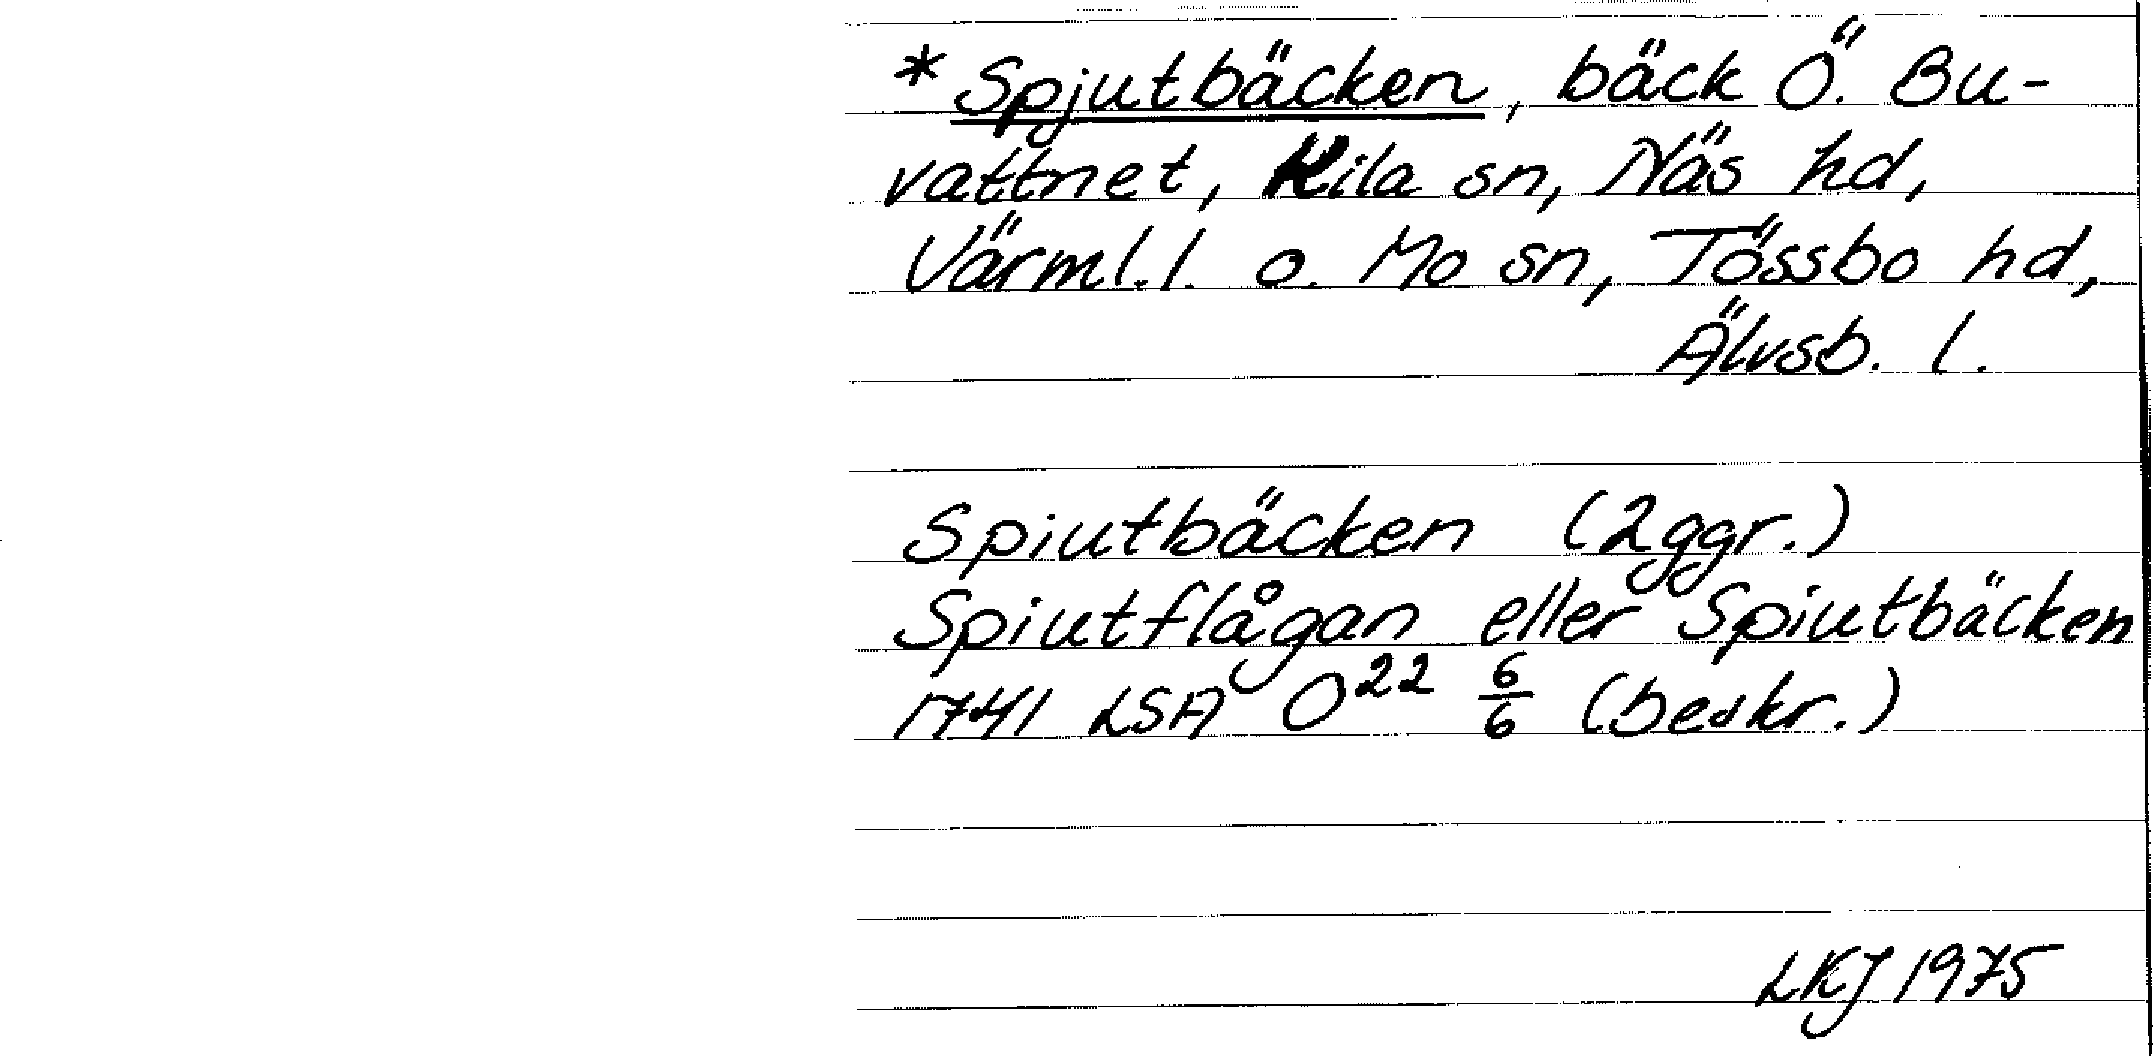 * Spjutbäcken, bäck Ö. Bu-
vattnet, Kila sn, Näs hd,
Värml. l. o. Mo sn, Tössbo hd,
Älvsb. l.
Spiutbäcken (2 ggr.)
Spiutflågan eller Spiutbäcken
1741 LSA O²² 6/6 (beskr.)
LKJ 1975